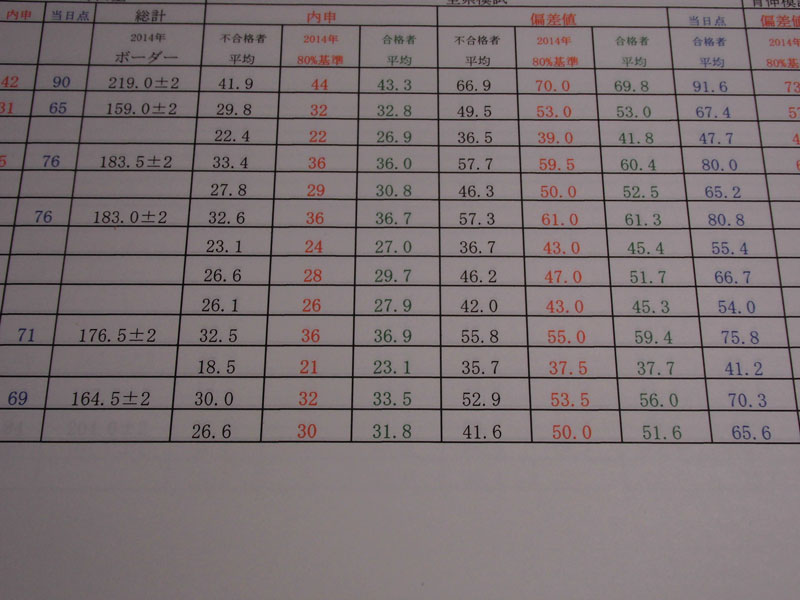 内申 当日点 総計 内申 偏差値 当日点 偏差値
2014年 ボーダー 不合格者 平均 2014年 80%基準 合格者 平均 不合格者 平均 2014年 80%基準 合格者 平均 合格者 平均 2014年 80%基準
42 90 219.0±2 41.9 44 43.3 66.9 70.0 69.8 91.6 73
31 65 159.0±2 29.8 32 32.8 49.5 53.0 53.0 67.4
22.4 22 26.9 36.5 39.0 41.8 47.7
5 76 183.5±2 33.4 36 36.0 57.7 59.5 60.4 80.0
27.8 29 30.8 46.3 50.0 52.5 65.2
76 183.0±2 32.6 36 36.7 57.3 61.0 61.3 80.8
23.1 24 27.0 36.7 43.0 45.4 55.4
26.6 28 29.7 46.2 47.0 51.7 66.7
26.1 26 27.9 42.0 43.0 45.3 54.0
71 176.5±2 32.5 36 36.9 55.8 55.0 59.4 75.8
18.5 21 23.1 35.7 37.5 37.7 41.2
69 164.5±2 30.0 32 33.5 52.9 53.5 56.0 70.3
26.6 30 31.8 41.6 50.0 51.6 65.6